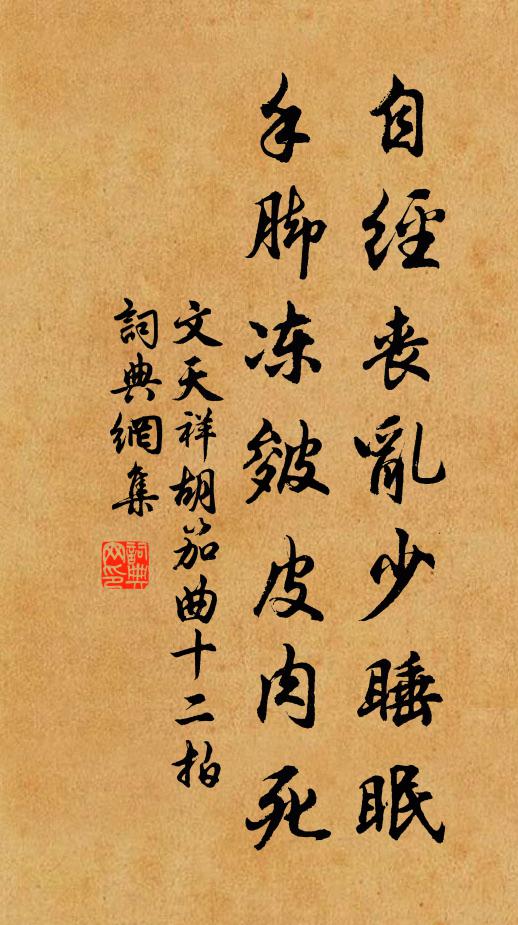 自經喪亂少睡眠
手脚冻皴皮肉死
文天祥胡笳曲十二拍
詞典網集
詞典网印